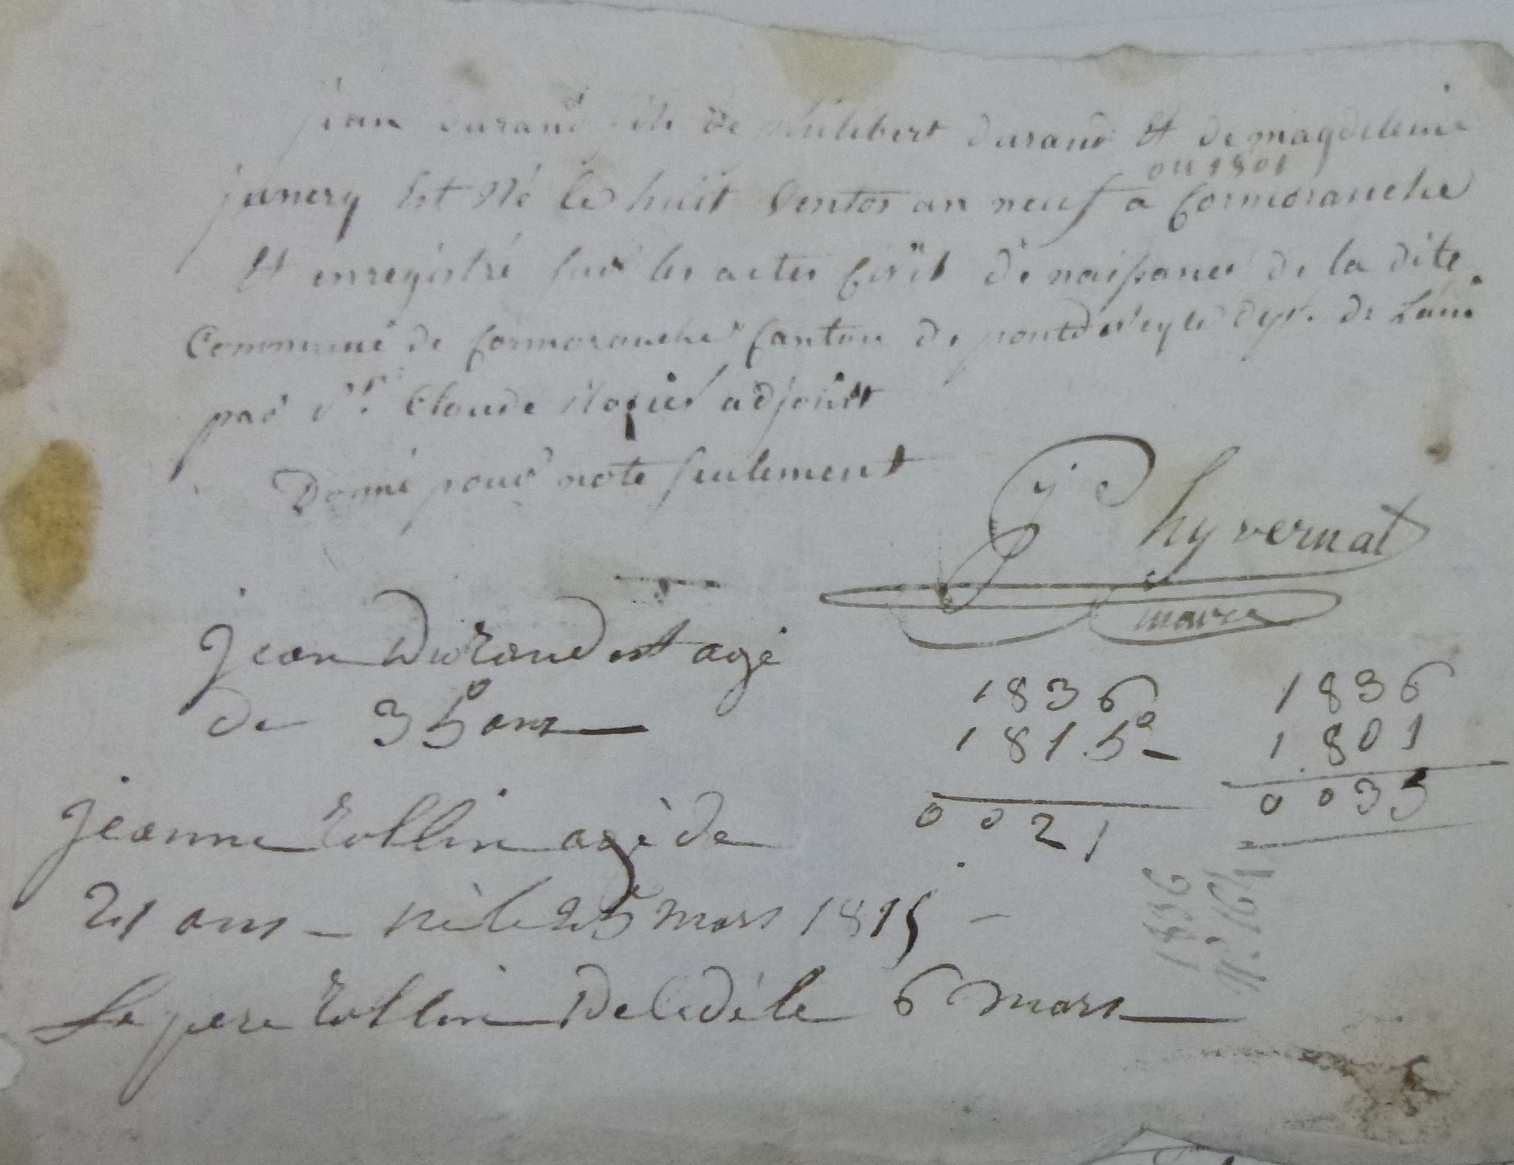 jean durand fils de philibert durand Et de magdeleine
ou 1801
junery Est Né le huit Ventos an neuf a Cormoranche
Et enregistré sur les actes Civil de naissance de la dite
Commune de Cormoranche Canton de pontdeveyle dept. de Lain
par Sr. Claude adjoint
Donné pour note seulement
hyvernat
maire
jean Durand est agé
de 35 ans
1836
1815
0021
1836
1801
0035
jeanne Collin agè de
21 ans - nè le 25 mars 1815 -
Le pere Collin Decedè le 6 mars
1836